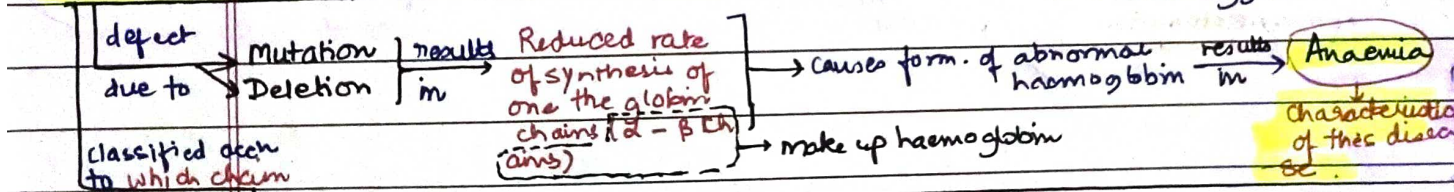 defect
due to
Mutation
Deletion
results
in
Reduced rate
of synthesis of
one the globin
chains (α - β ch
ains)
causes form. of abnormal
haemoglobin
results
in
Anaemia
characteristic
of this disea
se.
make up haemoglobin
classified accn
to which chain